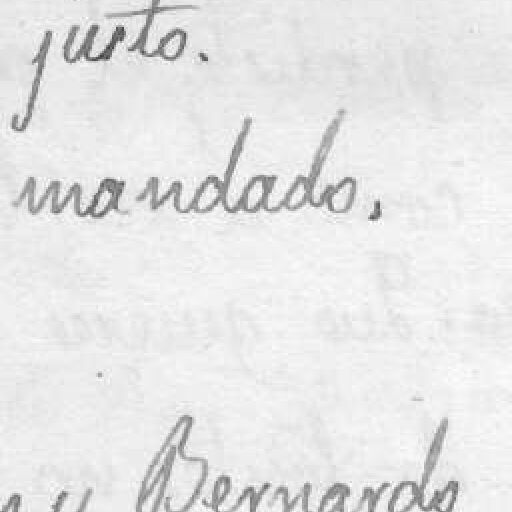 justo.
mandado,
y Bernardo